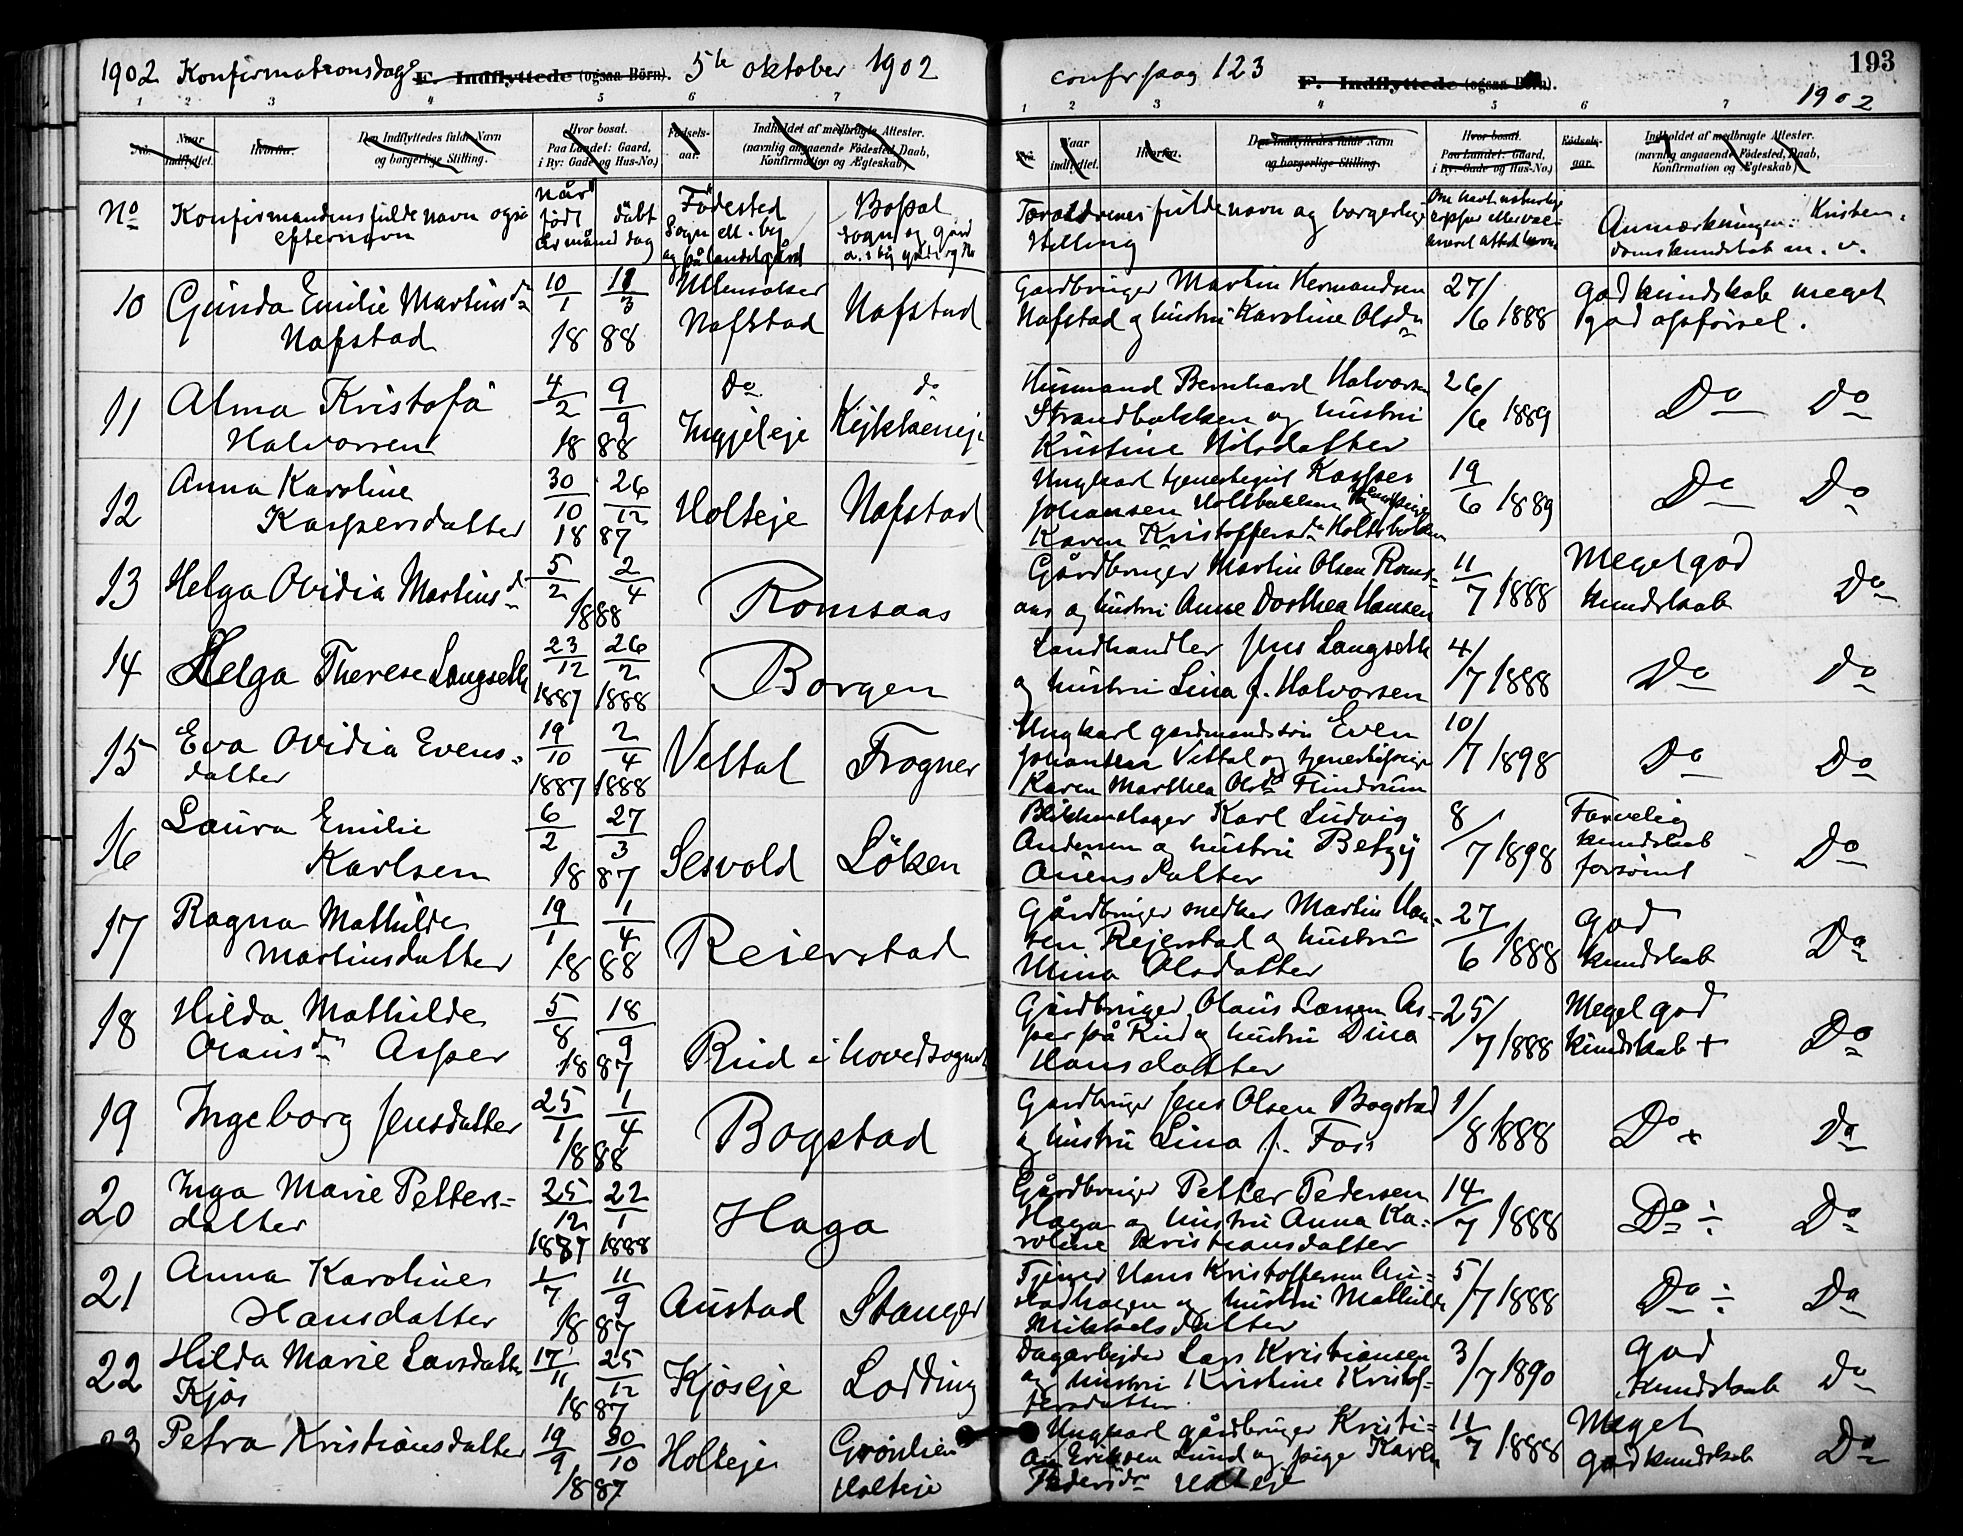 1902 Konfirmationsdag F. Indflyttede (ogsaa Börn). 5te oktober 1902
1 2 3 4 5 6 7
No. Naar indflyttet. Hvorfra. Den Indflyttedes fulde Navn og borgerlige Stilling. Hvor bosat. Paa Landet: Gaard, i By: Gade og Hus-No.) Fødsels-aar. Indholdet af medbragte Attester. (navnlig angaaende Fødested, Daab, Konfirmation og Ægteskab)
No Konfirmandens fulde navn også efternavn Når födt döbt år måned dag Födested Sogn ell. by og på landet gård Bopæl sogn og gård
10 Gunda Emilie Martins dr Nafstad 10/1 11/3 1888 Ullensaker Nafstad Nafstad
11 Alma Kristofa Halvorsen 4/2 9/9 1888 Do Ingjeleje do
12 Anna Karoline Kaspersdatter 30/10 26/12 1887 Holteje Nafstad
13 Helga Ovidia Martins d 5/2 2/4 1888 Romsaas
14 Helga Therese Langseth 23/12 1887 26/2 1888 Borgen
15 Eva Ovidia Evens=datter 19/10 1887 2/4 1888 Veltal Frogner
16 Laura Emilie Karlsen 6/2 27/3 1887 Sesvold Löken
17 Ragna Mathilde Martinsdatter 19/1 1/4 1888 Reierstad
18 Hilda Mathilde Olausdr Asper 5/8 18/9 1887 Rud i hovedsognet
19 Ingeborg Jensdatter 25/1 1/4 1888 Bogstad
20 Inga Marie Petters=datter 25/12 1887 22/1 1888 Haga
21 Anna Karoline Hansdatter 1/7 11/9 1887 Austad Stanger
22 Hilda Marie Larsdatter Kjos 17/11 25/12 1887 Kjoseje Lodding
23 Petra Kristiansdatter 19/9 30/10 1887 Holteje Grönlien Holteje
confr pag 123 F. Indflyttede (ogsaa Börn). 193
1902
1 2 3 4 5 6 7
No. Naar indflyttet. Hvorfra. Den Indflyttedes fulde Navn og borgerlige Stilling. Hvor bosat. Paa Landet: Gaard, i By: Gade og Hus-No.) Fødsels-aar. Indholdet af medbragte Attester. (navnlig angaaende Fødested, Daab, Konfirmation og Ægteskab)
Foraldrenes fulde navn og borgerlige stilling Om havt naturlige kopper eller vac-cineret attest herom Anmærkninger: Kristen-domskundskab m. v.
Gardbruger Martin Hermandsen Nafstad og hustru Karoline Olsdr 27/6 1888 God kundskab meget god opförsel.
Husmand Bernhard Halvorsen Strandbakken og hustru Kristine Nilsdatter 26/6 1889 Do Do
Ungkarl Kasper Johansen Holtbakken Karen Kristoffersdr Holtebakken 19/6 1889 Do Do
Gårdbruger Martin Olsen Roms=aas og hustru Anne Dorthea Hansen 11/7 1888 Meget god kundskab Do
Landhandler Jens Langseth og hustru Lina f. Halvorsen 4/7 1888 Do Do
Ungkarl gardmandssön Even Johansen Veltal og Karen Marthea Olsdr Flindrum 10/7 1898 Do Do
Blikkenslager Karl Ludvig Andersen og hustru Betzy 8/7 1898 Farvelig kundskab forsömt Do
Gårdbruger Martin Han=sen Rejerstad og hustru Mina Olsdatter 27/6 1888 God kundskab Do
Gårdbruger Olaus Larsen As=per på Rud og hustru Dina Hansdatter 25/7 1888 Meget god kundskab + Do
Gardbruger Jens Olsen Bogstad og hustru Lina f. Foss 1/8 1888 Do + Do
Gårdbruger Petter Pedersen Haga og hustru Anna Ka=roline Kristiansdatter 14/7 1888 Do ÷ Do
Tjener Hans Kristoffersen Au=stadhagen og hustru Mathilde Mikkelsdatter 5/7 1888 Do ÷ Do
Dagarbejder Lars Kristiansen og hustru Kristine Kristof=fersdatter 3/7 1890 God kundskab Do
Ungkarl gårdbruger Kristi=an Eriksen Lund og pige Karen Pedersdr 11/7 1888 Meget god kundskab Do